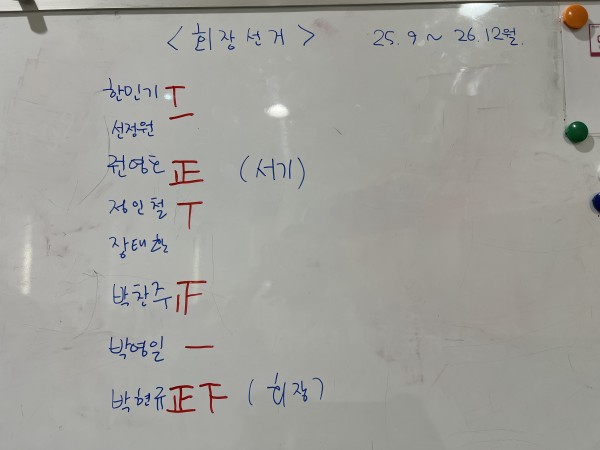 <회장선거> 25. 9 ~ 26. 12월.
한민기 T
선정원 一
권영호 正 (서기)
정인철 T
장태환
박찬주 正
박영일 一
박현규 正 下 (회장)